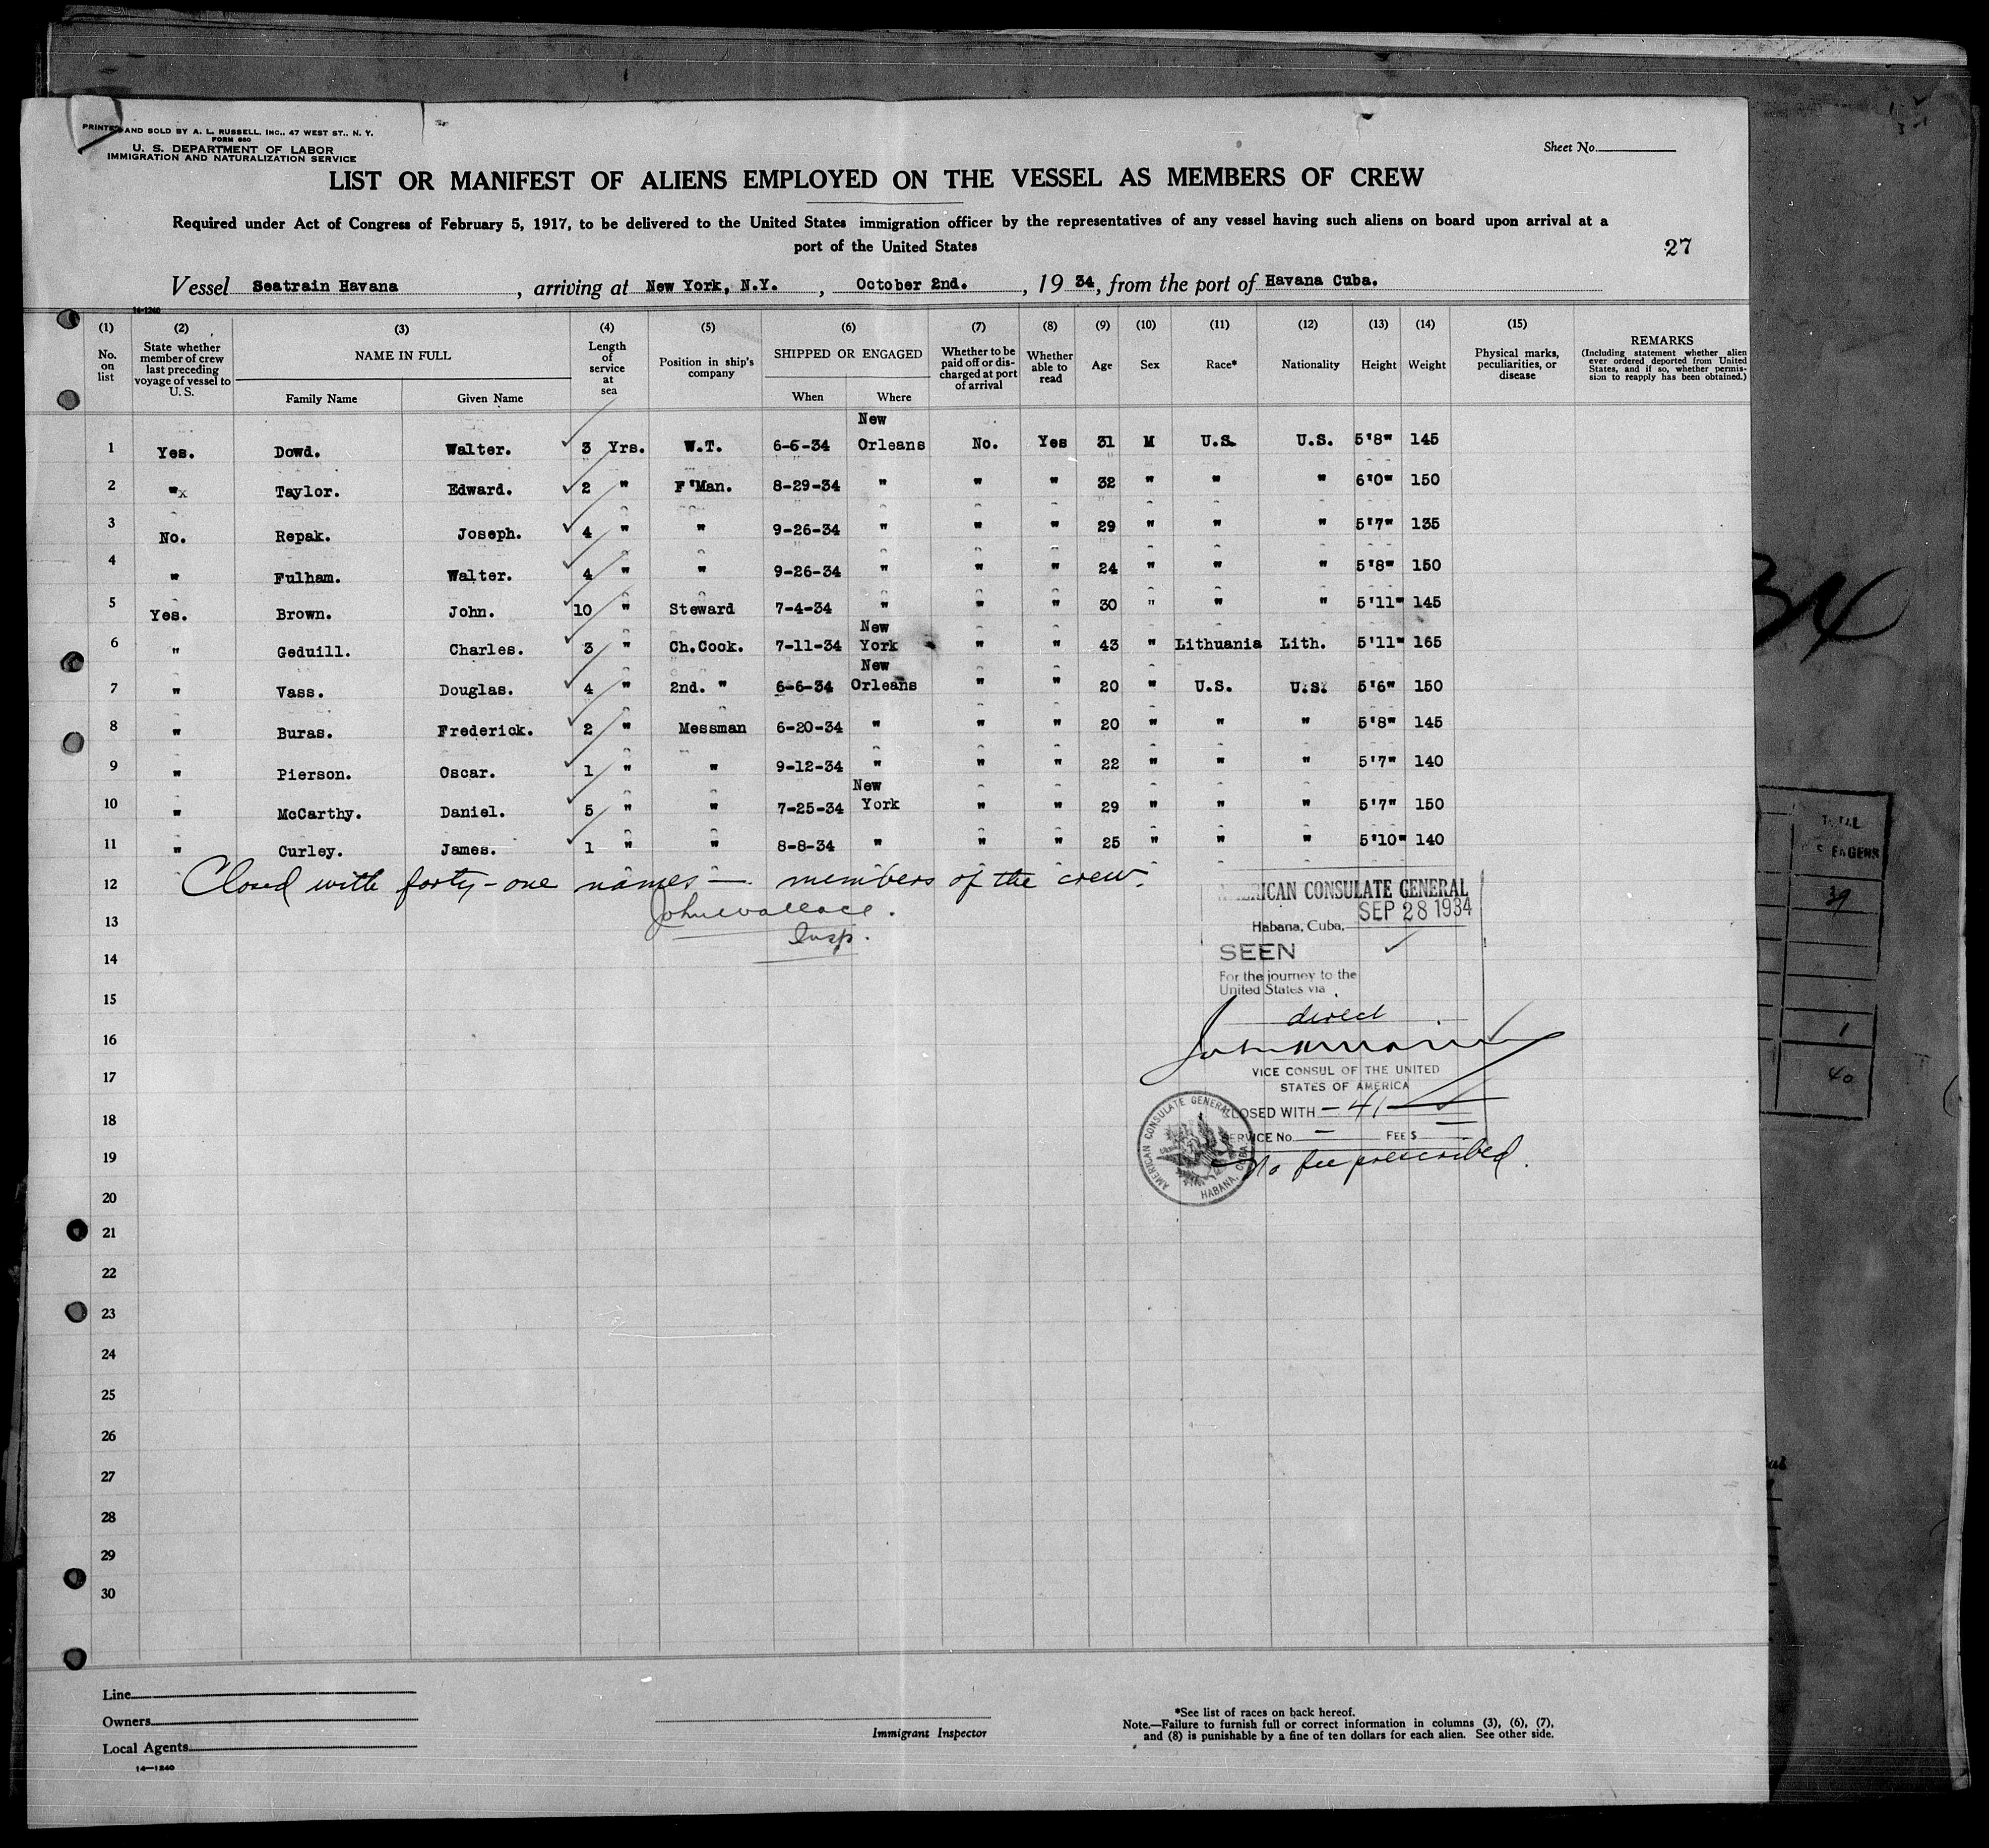 PRINTED AND SOLD BY A. L. RUSSELL, INC., 47 WEST ST., N. Y.
FORM 680
U. S. DEPARTMENT OF LABOR
IMMIGRATION AND NATURALIZATION SERVICE
Sheet No.
LIST OR MANIFEST OF ALIENS EMPLOYED ON THE VESSEL AS MEMBERS OF CREW
Required under Act of Congress of February 5, 1917, to be delivered to the United States immigration officer by the representatives of any vessel having such aliens on board upon arrival at a
port of the United States
27
Vessel Seatrain Havana, arriving at New York, N.Y., October 2nd., 19 34, from the port of Havana Cuba.
14-1240
(1) (2) (3) (4) (5) (6) (7) (8) (9) (10) (11) (12) (13) (14) (15)
No. on list | State whether member of crew last preceding voyage of vessel to U. S. | NAME IN FULL | Length of service at sea | Position in ship's company | SHIPPED OR ENGAGED | Whether to be paid off or discharged at port of arrival | Whether able to read | Age | Sex | Race* | Nationality | Height | Weight | Physical marks, peculiarities, or disease | REMARKS (Including statement whether alien ever ordered deported from United States, and if so, whether permission to reapply has been obtained.)
Family Name | Given Name | When | Where
1 Yes. Dowd. Walter. 3 Yrs. W.T. 6-6-34 New Orleans No. Yes 31 M U.S. U.S. 5'8" 145
2 "x Taylor. Edward. 2 " F'Man. 8-29-34 " " " 32 " " " 6'0" 150
3 No. Repak. Joseph. 4 " " 9-26-34 " " " 29 " " " 5'7" 135
4 " Fulham. Walter. 4 " " 9-26-34 " " " 24 " " " 5'8" 150
5 Yes. Brown. John. 10 " Steward 7-4-34 " " " 30 " " " 5'11" 145
6 " Geduill. Charles. 3 " Ch.Cook. 7-11-34 New York " " 43 " Lithuania Lith. 5'11" 165
7 " Vass. Douglas. 4 " 2nd. " 6-6-34 New Orleans " " 20 " U.S. U.S. 5'6" 150
8 " Buras. Frederick. 2 " Messman 6-20-34 " " " 20 " " " 5'8" 145
9 " Pierson. Oscar. 1 " " 9-12-34 " " " 22 " " " 5'7" 140
10 " McCarthy. Daniel. 5 " " 7-25-34 New York " " 29 " " " 5'7" 150
11 " Curley. James. 1 " " 8-8-34 " " " 25 " " " 5'10" 140
12 Closed with forty-one names — members of the crew.
John Wallace.
Insp.
AMERICAN CONSULATE GENERAL
SEP 28 1934
Habana, Cuba,
SEEN
For the journey to the
United States via
direct
VICE CONSUL OF THE UNITED
STATES OF AMERICA
CLOSED WITH - 41
SERVICE No. — FEE $ —
No fee prescribed.
AMERICAN CONSULATE GENERAL HABANA, CUBA.
13
14
15
16
17
18
19
20
21
22
23
24
25
26
27
28
29
30
34
TOTAL
39
1
40
Line
Owners
Local Agents
14—1240
Immigrant Inspector
*See list of races on back hereof.
Note.—Failure to furnish full or correct information in columns (3), (6), (7),
and (8) is punishable by a fine of ten dollars for each alien. See other side.